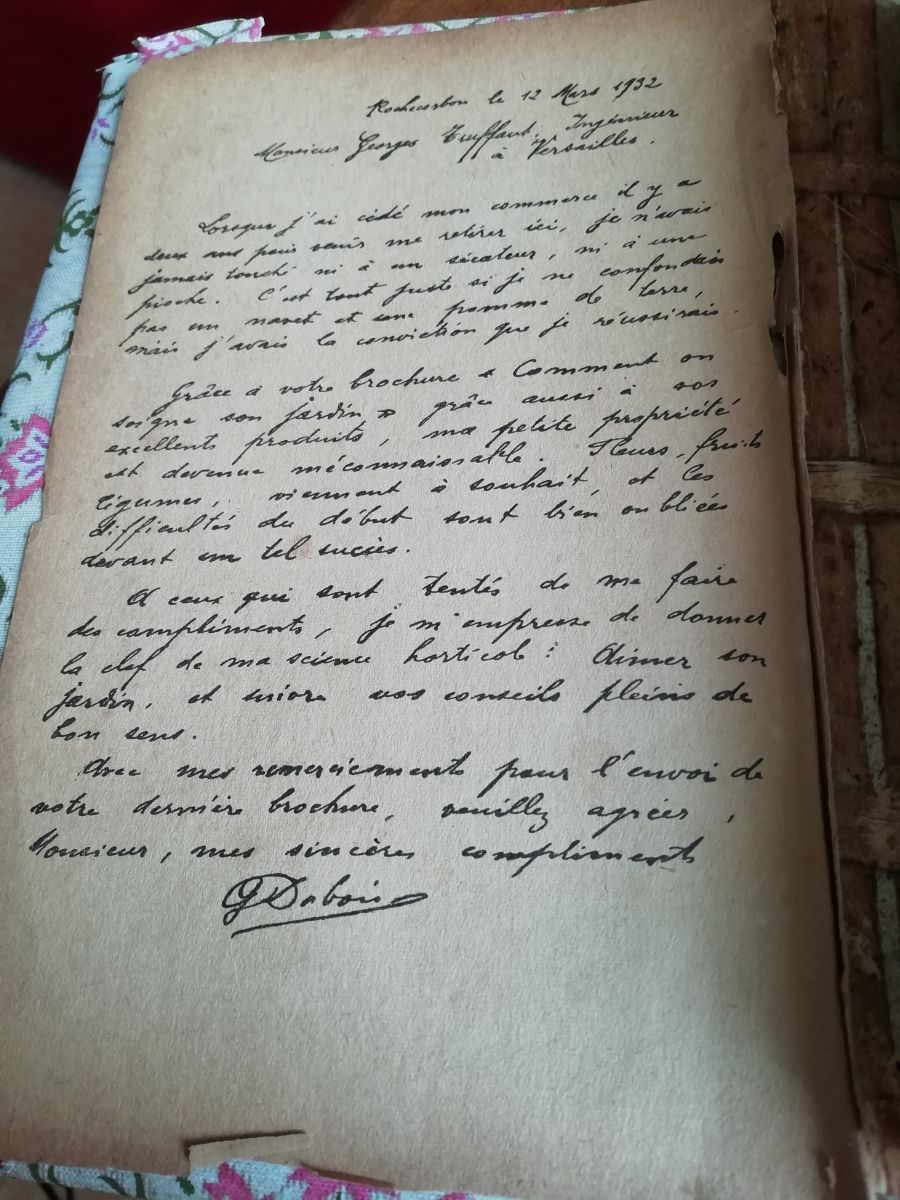 Rochecorbon le 12 Mars 1932
Monsieur Georges Truffaut, Ingénieur
à Versailles.
Lorsque j'ai cédé mon commerce il y a
deux ans pour venir me retirer ici, je n'avais
jamais touché ni à un sécateur, ni à une
pioche. C'est tout juste si je ne confondais
pas un navet et une pomme de terre,
mais j'avais la conviction que je réussirais.
Grâce à votre brochure « Comment on
soigne son jardin » grâce aussi à vos
excellents produits, ma petite propriété
est devenue méconnaissable. Fleurs, fruits
légumes, viennent à souhait, et les
difficultés du début sont bien oubliées
devant un tel succès.
A ceux qui sont tentés de me faire
des compliments, je m'empresse de donner
la clef de ma science horticole : Aimer son
jardin, et suivre vos conseils pleins de
bon sens.
Avec mes remerciements pour l'envoi de
votre dernière brochure, veuillez agréer,
Monsieur, mes sincères compliments
G Dubois